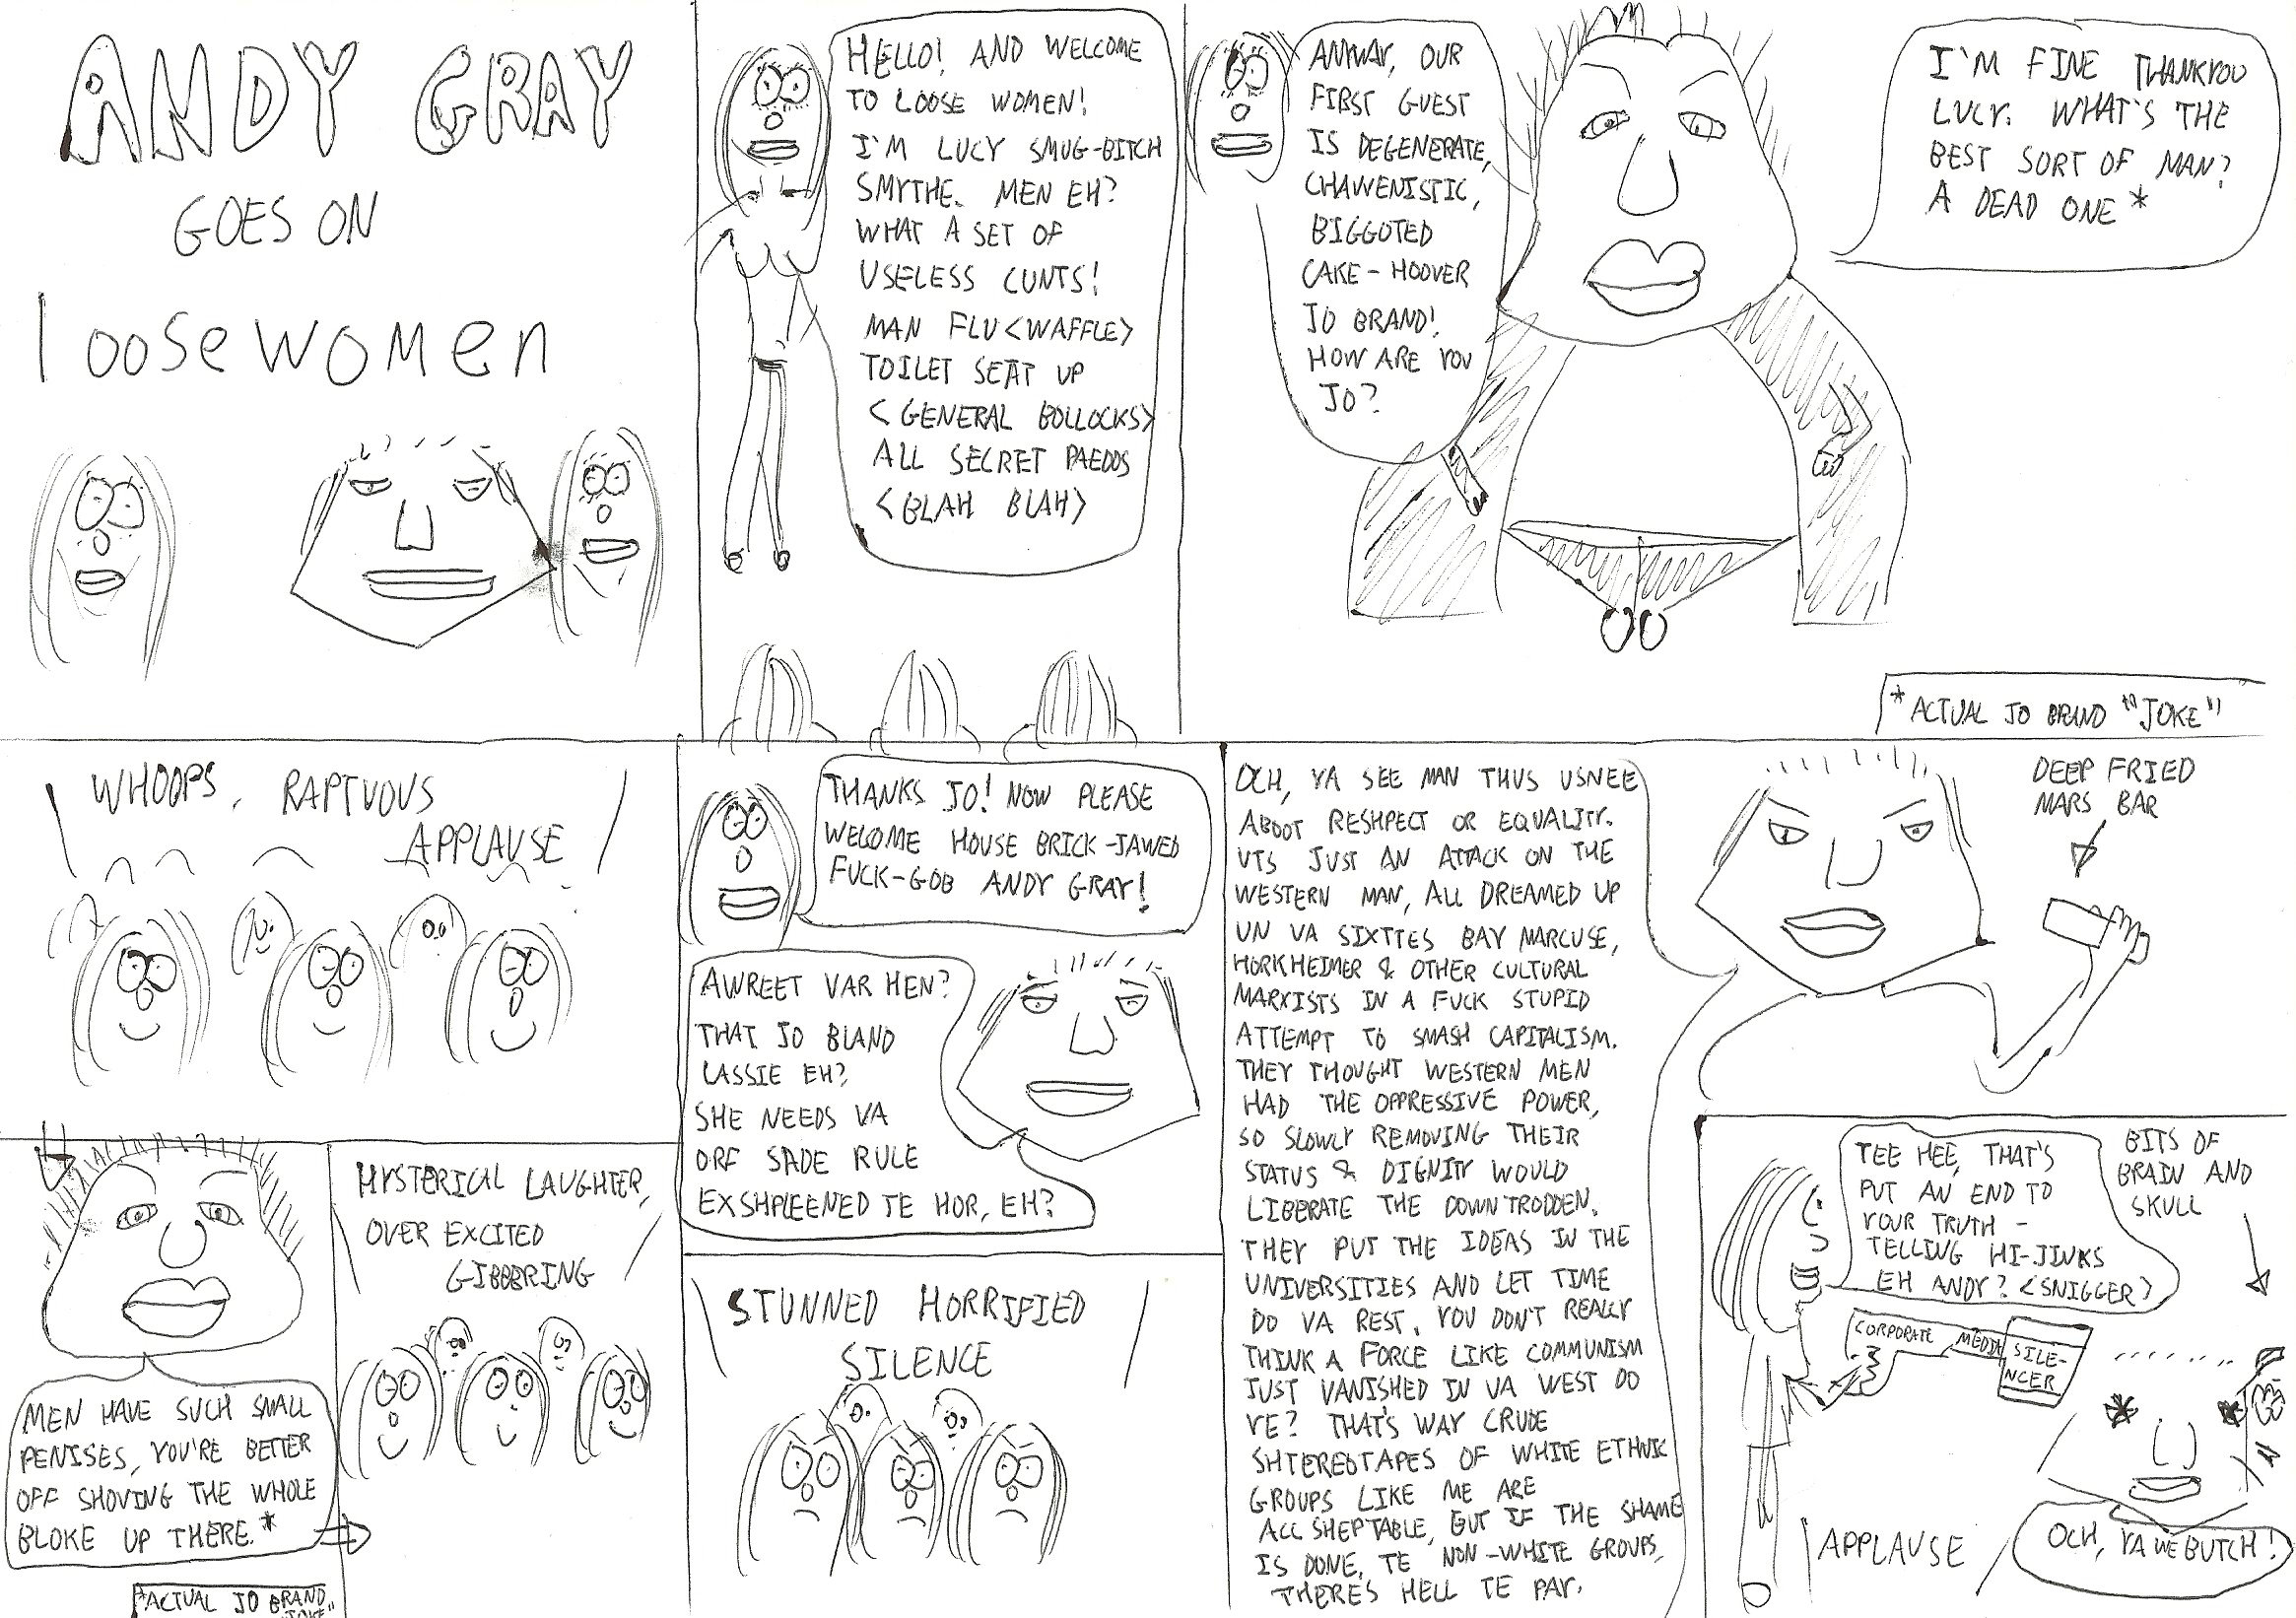 ANDY GRAY
GOES ON
loose women
HELLO! AND WELCOME
TO LOOSE WOMEN!
I'M LUCY SMUG-BITCH
SMYTHE. MEN EH?
WHAT A SET OF
USELESS CUNTS!
MAN FLU <WAFFLE>
TOILET SEAT UP
<GENERAL BOLLOCKS>
ALL SECRET PAEDOS
<BLAH BLAH>
ANWAY, OUR
FIRST GUEST
IS DEGENERATE,
CHAVVENISTIC,
BIGGOTED
CAKE-HOOVER
JO BRAND!
HOW ARE YOU
JO?
I'M FINE THANKYOU
LUCY. WHAT'S THE
BEST SORT OF MAN?
A DEAD ONE *
* ACTUAL JO BRAND "JOKE"
WHOOPS, RAPTUOUS
APPLAUSE
MEN HAVE SUCH SMALL
PENISES, YOU'RE BETTER
OFF SHOVING THE WHOLE
BLOKE UP THERE.*
*ACTUAL JO BRAND
"JOKE"
HYSTERICAL LAUGHTER,
OVER EXCITED
GIBBBRING
THANKS JO! NOW PLEASE
WELOME HOUSE BRICK-JAWED
FUCK-GOB ANDY GRAY!
AWREET YAR HEN?
THAT JO BLAND
LASSIE EH?
SHE NEEDS YA
ORF SADE RULE
EXSHPLEENED TE HOR, EH?
STUNNED HORRIFIED
SILENCE
OCH, YA SEE MAN THUS USNEE
ABOOT RESHPECT OR EQUALITY.
UTS JUST AN ATTACK ON THE
WESTERN MAN, ALL DREAMED UP
UN YA SIXTTES BAY MARCUSE,
HORKHEIMER & OTHER CULTURAL
MARXISTS IN A FUCK STUPID
ATTEMPT TO SMASH CAPITALISM.
THEY THOUGHT WESTERN MEN
HAD THE OPPRESSIVE POWER,
SO SLOWLY REMOVING THEIR
STATUS & DIGNITY WOULD
LIBERATE THE DOWNTRODDEN.
THEY PUT THE IDEAS IN THE
UNIVERSITIES AND LET TIME
DO YA REST. YOU DON'T REALLY
THINK A FORCE LIKE COMMUNISM
JUST VANISHED IN YA WEST DO
YE? THAT'S WAY CRUDE
SHTEREOTAPES OF WHITE ETHNIC
GROUPS LIKE ME ARE
ALL SHEPTABLE, BUT IF THE SHAME
IS DONE, TE NON-WHITE GROUPS,
THERES HELL TE PAY.
DEEP FRIED
MARS BAR
TEE HEE, THAT'S
PUT AN END TO
YOUR TRUTH -
TELLING HI-JINKS
EH ANDY? <SNIGGER>
BITS OF
BRAIN AND
SKULL
CORPORATE MEDIA
SILE-
NCER
APPLAUSE
OCH, YA WE BUTCH!